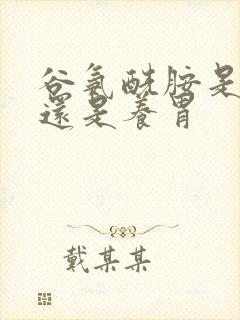 谷氨酰胺是
還是養胃
戴某某